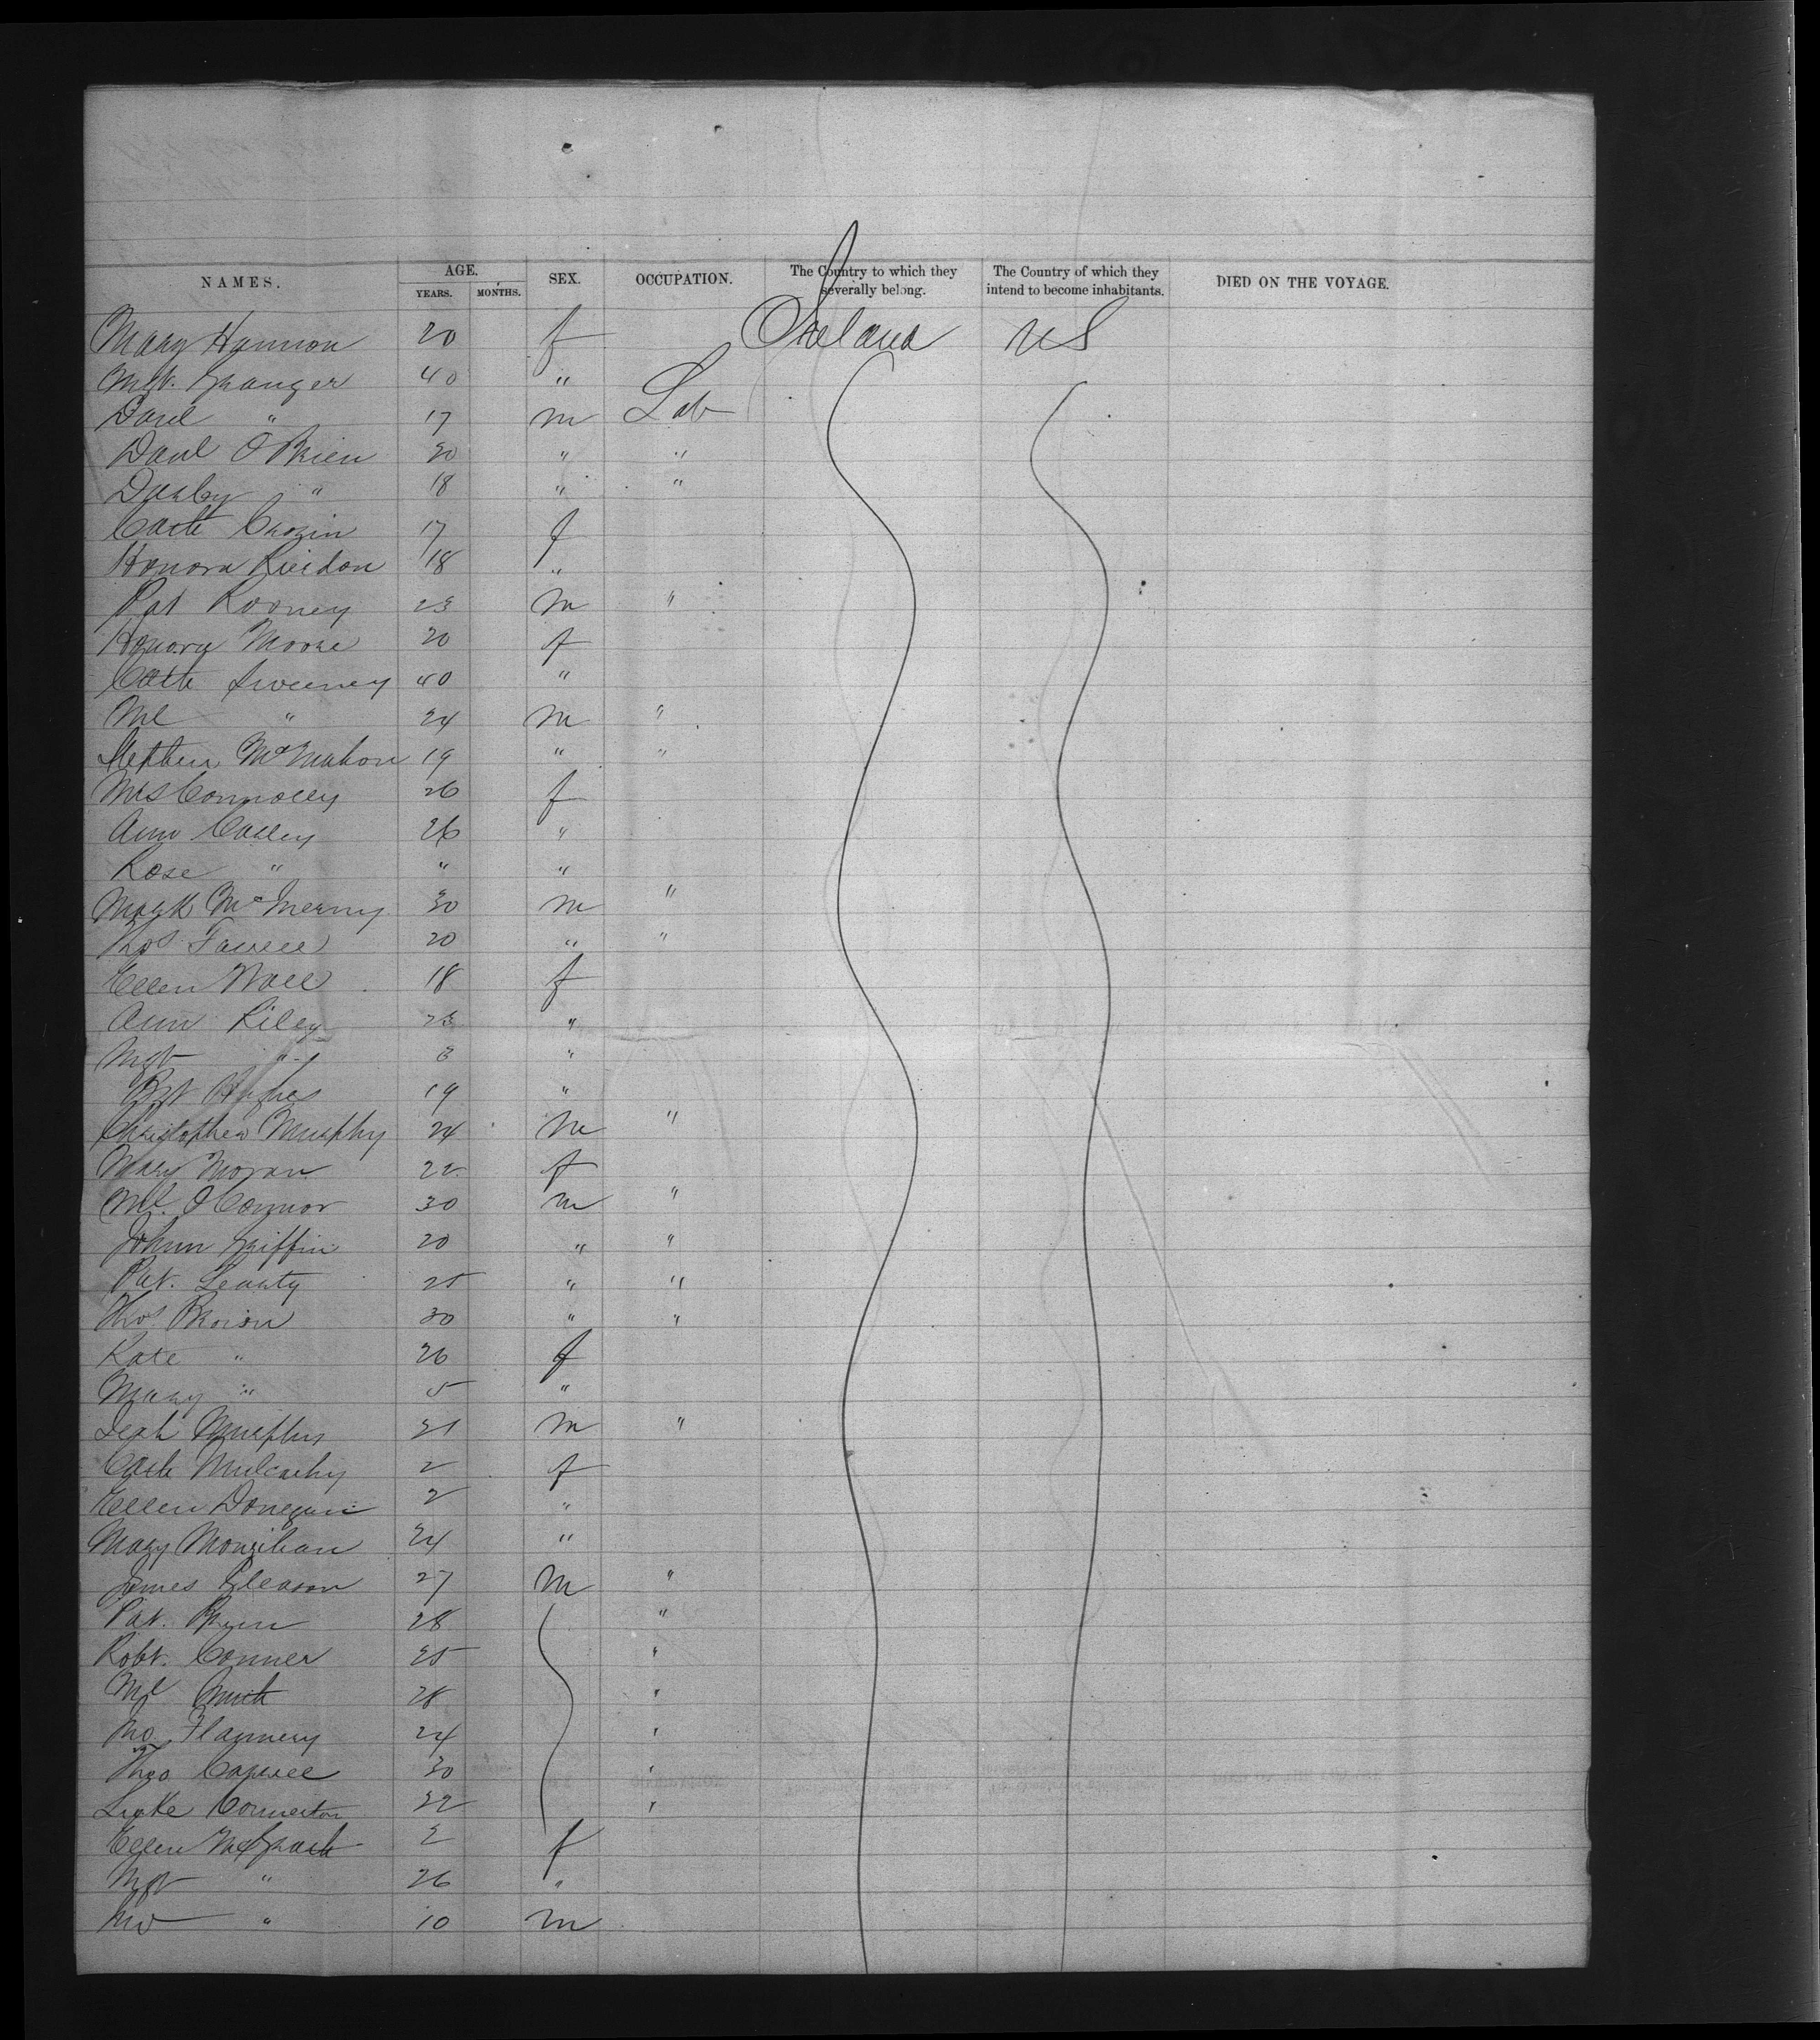 NAMES. AGE. SEX. OCCUPATION. The Country to which they severally belong. The Country of which they intend to become inhabitants. DIED ON THE VOYAGE.
YEARS. MONTHS.
Mary Hannon 20 f Ireland US
Mgt. Granger 40 "
Danl " 17 m Lab
Danl O'Brien 30 " "
Darby " 18 " "
Cath Cronin 17 f
Honora Riordon 18 "
Pat Rooney 23 m "
Honora Moore 20 f
Cath Sweeney 40 "
Ml " 24 m "
Stephen McMahon 19 " "
Mrs Connolly 26 f
Ann Calley 26 "
Rose " " "
Mark McInerny 30 m "
Thos Farrell 20 " "
Ellen Wall 18 f
Ann Riley 23 "
Mgt " 3 "
Bgt Hughes 19 "
Christopher Murphy 24 m "
Mary Moran 22 f
Ml. O'Connor 30 m "
John Griffin 20 " "
Pat. Leahy 25 " "
Thos 30 " "
Kate " 26 f
Mary " 5 "
Murphy 21 m "
Cath Mulcahy 2 f
Ellen Donegan 2 "
Mary Monihan 24 "
James Gleason 27 m "
Pat. 28 "
Robt. Conner 25 "
Ml Smith 28 "
Jno Flannery 24 "
Thos 30 "
Luke Connerton 22 "
Ellen McGrath 2 f
Mgt " 26 "
Jno " 10 m